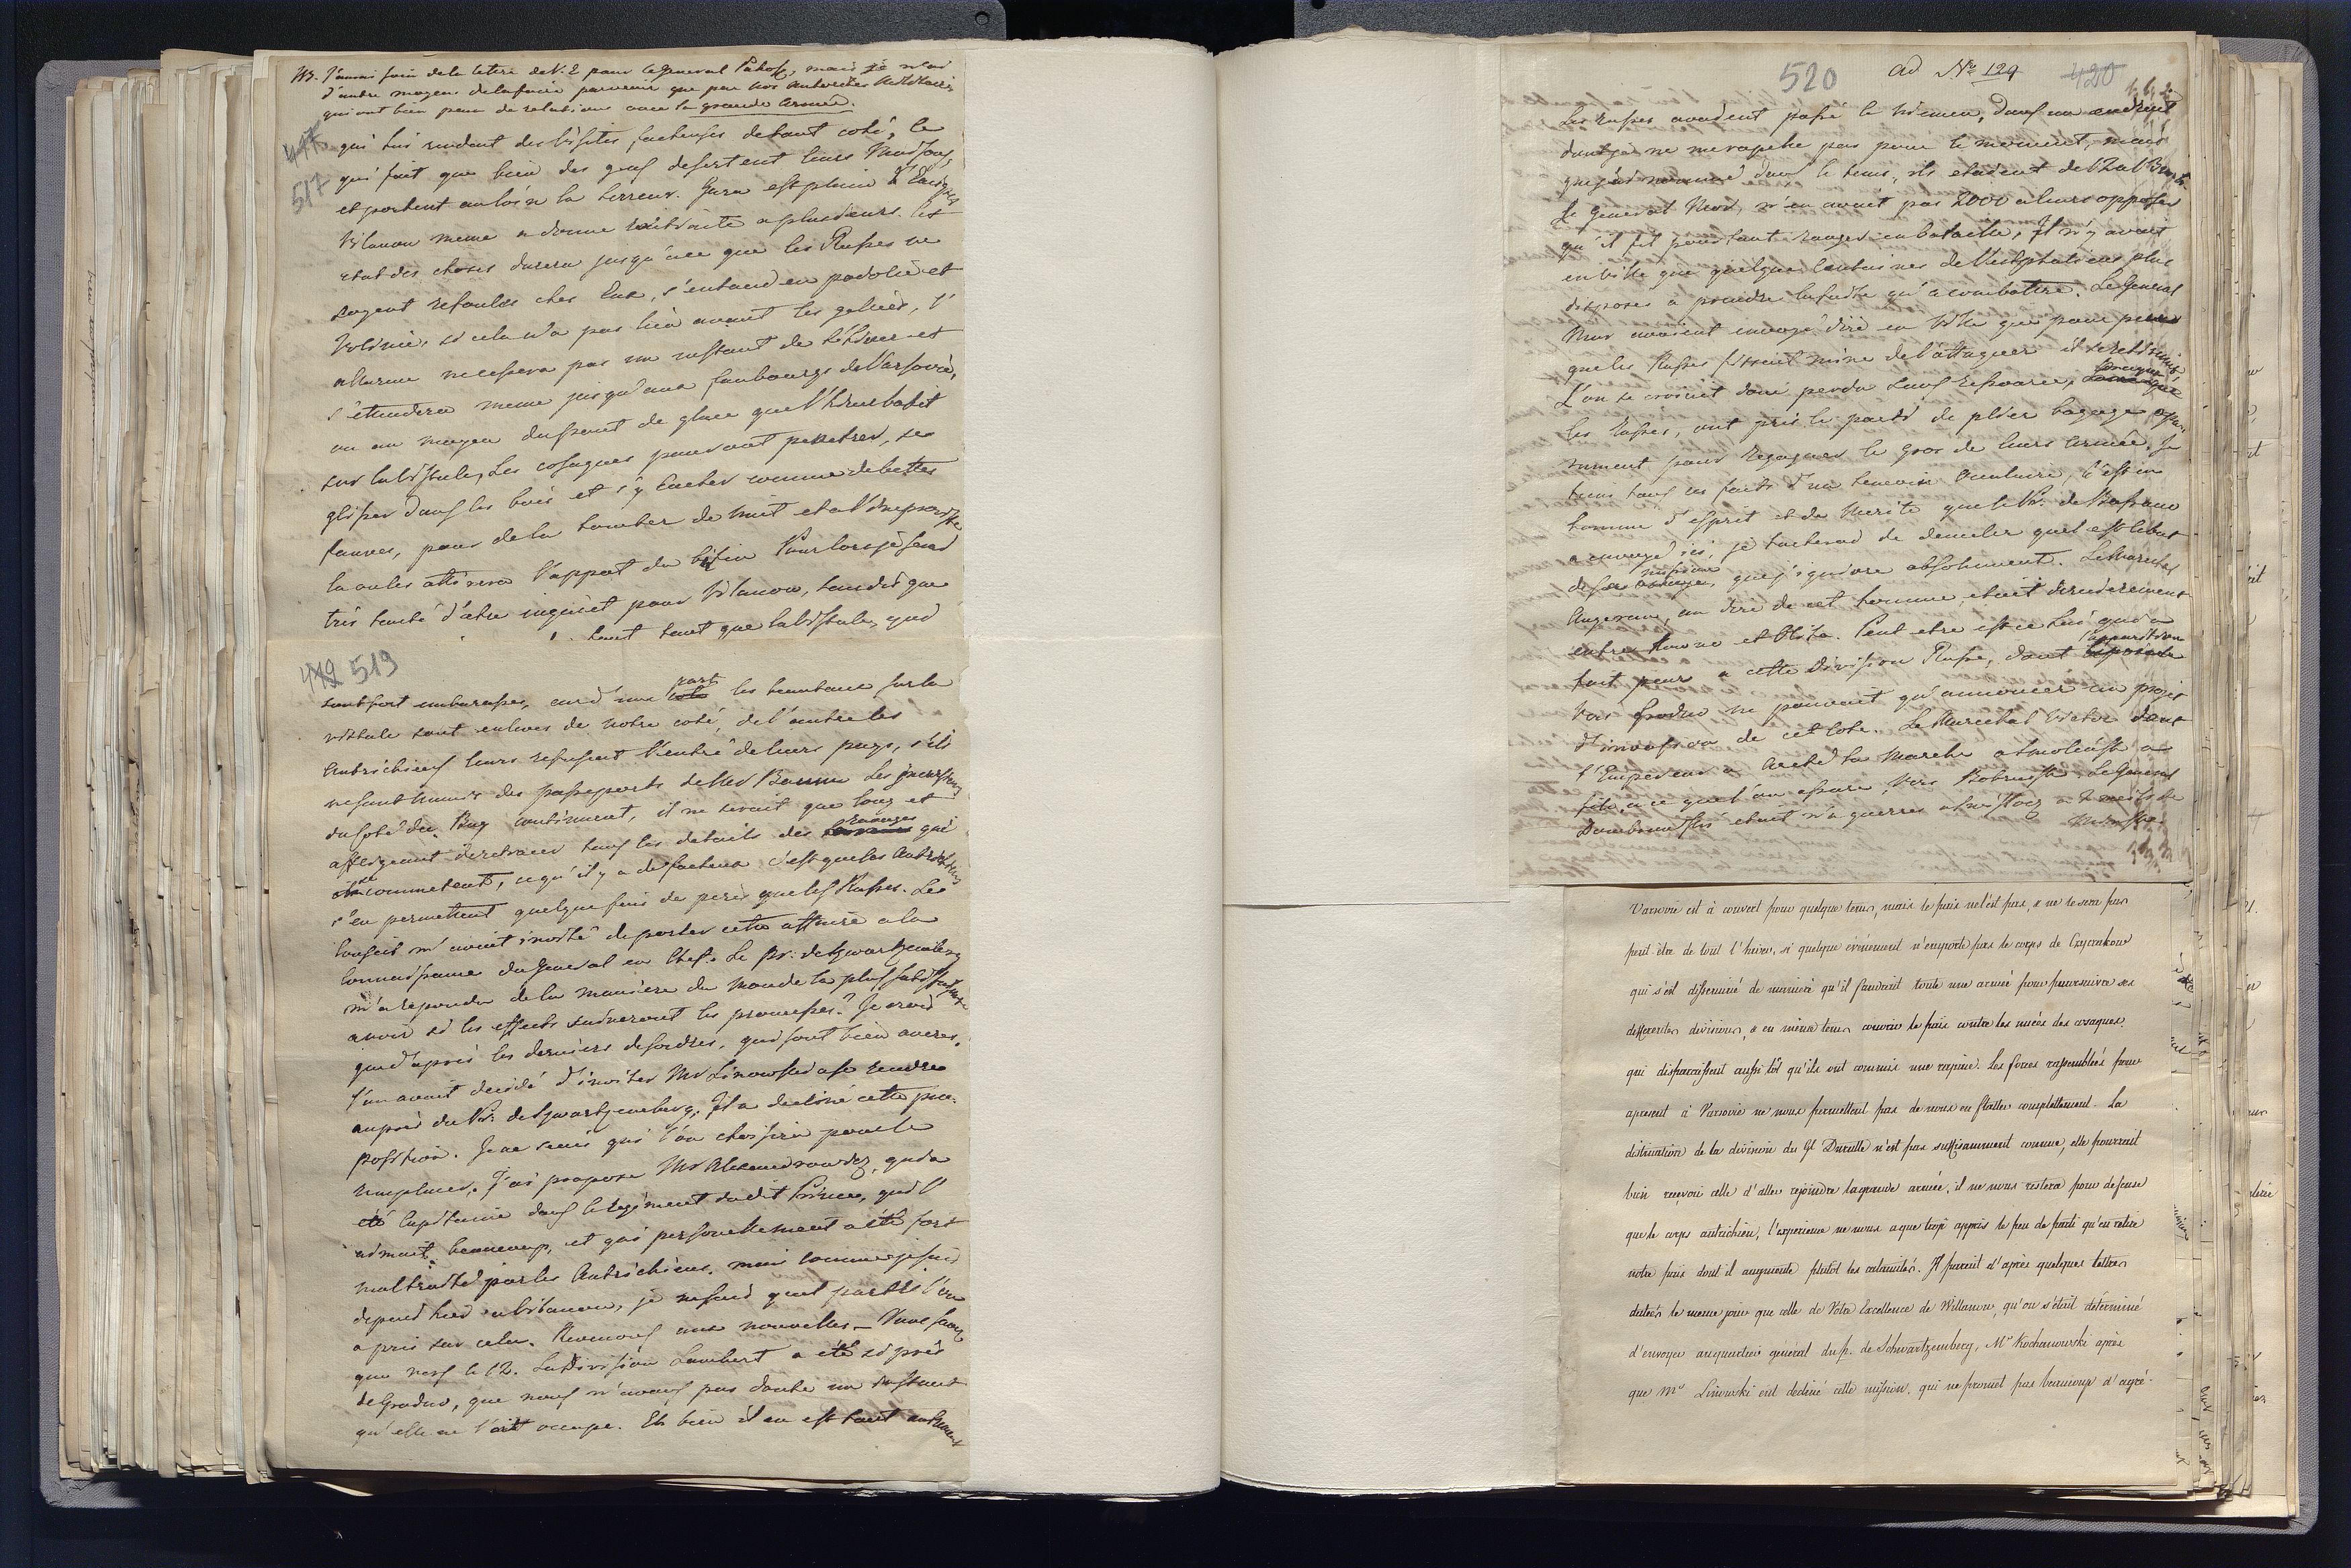 NB. J'aurai soin de la lettre de V. E pour le General Pakosz, mais je n'ai
d'autre moyen de la faire parvenir que par nos autorités Militaires
qui ont bien peu de relations avec la grande Armée.
477
517
qui lui rendent des visites facheuses de tout coté, ce
qui fait que bien des gens desertent leurs Maisons,
et portent au loin la terreur. Gura est plein d'
Vilanow meme a donné retraite a plusieurs. Cet
etat des choses durera jusqu'à ce que les Russes ne
soyent refoulés chez Eux, s'entend en podolie et
Volinie, si cela n'a pas lieu avant les gelées, l'
allarme ne cessera pas un instant de l'hiver et
s'etendera meme jusqu'aux faubourgs de Varsovie,
ou au moyen du pont de glace que l'hiver batit
sur la Vistule, Les cosaques pourront penetrer, se
glisser dans les bois et s'y cacher comme de bettes
fauves, pour de la tomber de nuit et a l'improviste
la ou les attirera l'appat du butin Pour lors je serai
très tenté d'etre inquiet pour Vilanow, tandis que
tout tant que la Vistule, qui
479 519
sont fort embarassés, car d'une part les bateaux sur la
vistule sont enlevés de notre coté, de l'autre les
Autrichiens leurs refusent l'entré de leurs pays, s'ils
ne sont munis des passeports de Mr Baum Les
du coté du Bug continuent, il ne serait que long et
affligeant d'entrer dans les details des ravages qui
se commettent, ce qu'il y a de facheux c'est que les Autrichiens
s'en permettent quelque fois de pires que les Russes. Le
Conseil m'avait invité de porter cette affaire a la
Connaissance du General en Chef. Le Pr: de Szwartzenberg
m'a repondu de la maniere du Monde la plus satisfaisante
a voir si les effects suivront les promesses? Je crois
que d'après les derniers desordres, qui sont bien averés,
l'on avait decidé d'inviter Mr Linowski a se rendre
auprès du Pr: de Szwartzenberg. Il a decliné cette pro-
position. Je ne sais qui l'on choisira pour le
remplacer. J'ai proposé Mr Alexandrowicz, qui a
été Capitaine dans le regiment dudit Prince, qui l'
aimait beaucoup, et qui personellement a été fort
maltraité par les Autrichiens, mais comme je suis
depuis hier a Vilanow, je ne sais quel parti l'on
a pris sur cela. Revenons aux nouvelles — Vous savez
que vers le 12. La Division Lambert a été si près
de Grodno, que nous n'avons pas douté un instant
qu'elle ne l'ait occupé. Eh bien il en est tout autrement
520
ad No 129
420
Les Russes avaient passé le Niemen, dans un endroit
dont je ne me rapelle pas pour le moment, mais
que j'ai nommé dans le tems, ils etaient
Le General Mor, n'en avait pas 2000 a leurs opposer
qu'il fit pourtant ranger en bataille, Il n'y avait
en Ville que quelques centaines de Vestphaliens plus
disposés a prendre la fuite qu'a combattre. Le General
Mor avaient envoyé dire en Ville que pour peu
que les Russes fissent mine de l'attaquer il se retirerait
L'on se croiait donc perdu sans ressource, lorsque
les Russes, ont pris le parti de plier bagage
pour regagner le gros de leurs Armée. Je
tiens tous ces faits d'un temoin Oculaire, c'est un
homme d'esprit et de Merite que le Pr. de Bassano
a envoyé ici, je tacherai de demeler quel est le but
de sa mission, que j'ignore absolument. Le Marechal
Augereau, au dire de cet homme, etait dernierement
entre Kowno et Vilna. Peut etre est ce Lui qui a
fait peur a cette Division Russe, dont l'apparition
vers Grodno ne pouvait qu'annoncer un projet
d'invasion de ce coté. Le Marechal Victor dont
l'Empereur a areté la Marche a Smolensk a
filé, a ce que l'on assure, vers Bobruysk. Le General
Dombrowski etait n'a guerres a Swisłocz a 7 meils de
Minsk.
Varsovie est à couvert pour quelque tems, mais le païs ne l'est pas, & ne le sera pas
peut-être de tout l'hiver, si quelque événement n'emporte pas le corps de Czyczakow
qui s'est disseminé de manière qu'il faudrait toute une armée pour poursuivre ses
differentes divisions, & en même tems couvrir le païs contre les nuées des cosaques,
qui disparaissent aussi tôt qu'ils ont commis une rapine. Les forces rassemblées pour
apresent à Varsovie ne nous permettent pas de nous en flatter complettement. La
distination de la division du Gl Durutte n'est pas suffisamment connue, elle pourrait
bien reçevoir celle d'aller rejoindre la grande armée, il ne nous restera pour defense
que le corps autrichien, l'experience ne nous a que trop appris le peu de parti qu'en retire
notre païs dont il augmente plutôt les calamités. Il parait d'après quelques lettres
datées le meme jour que celle de Votre Excellence de Willanow, qu'on s'était déterminé
d'envoyer au quartier général du p. de Schwartzemberg, Mr Kochanowski après
que Mr Linowski eut decliné cette mission, qui ne promet pas beaucoup d'agré-